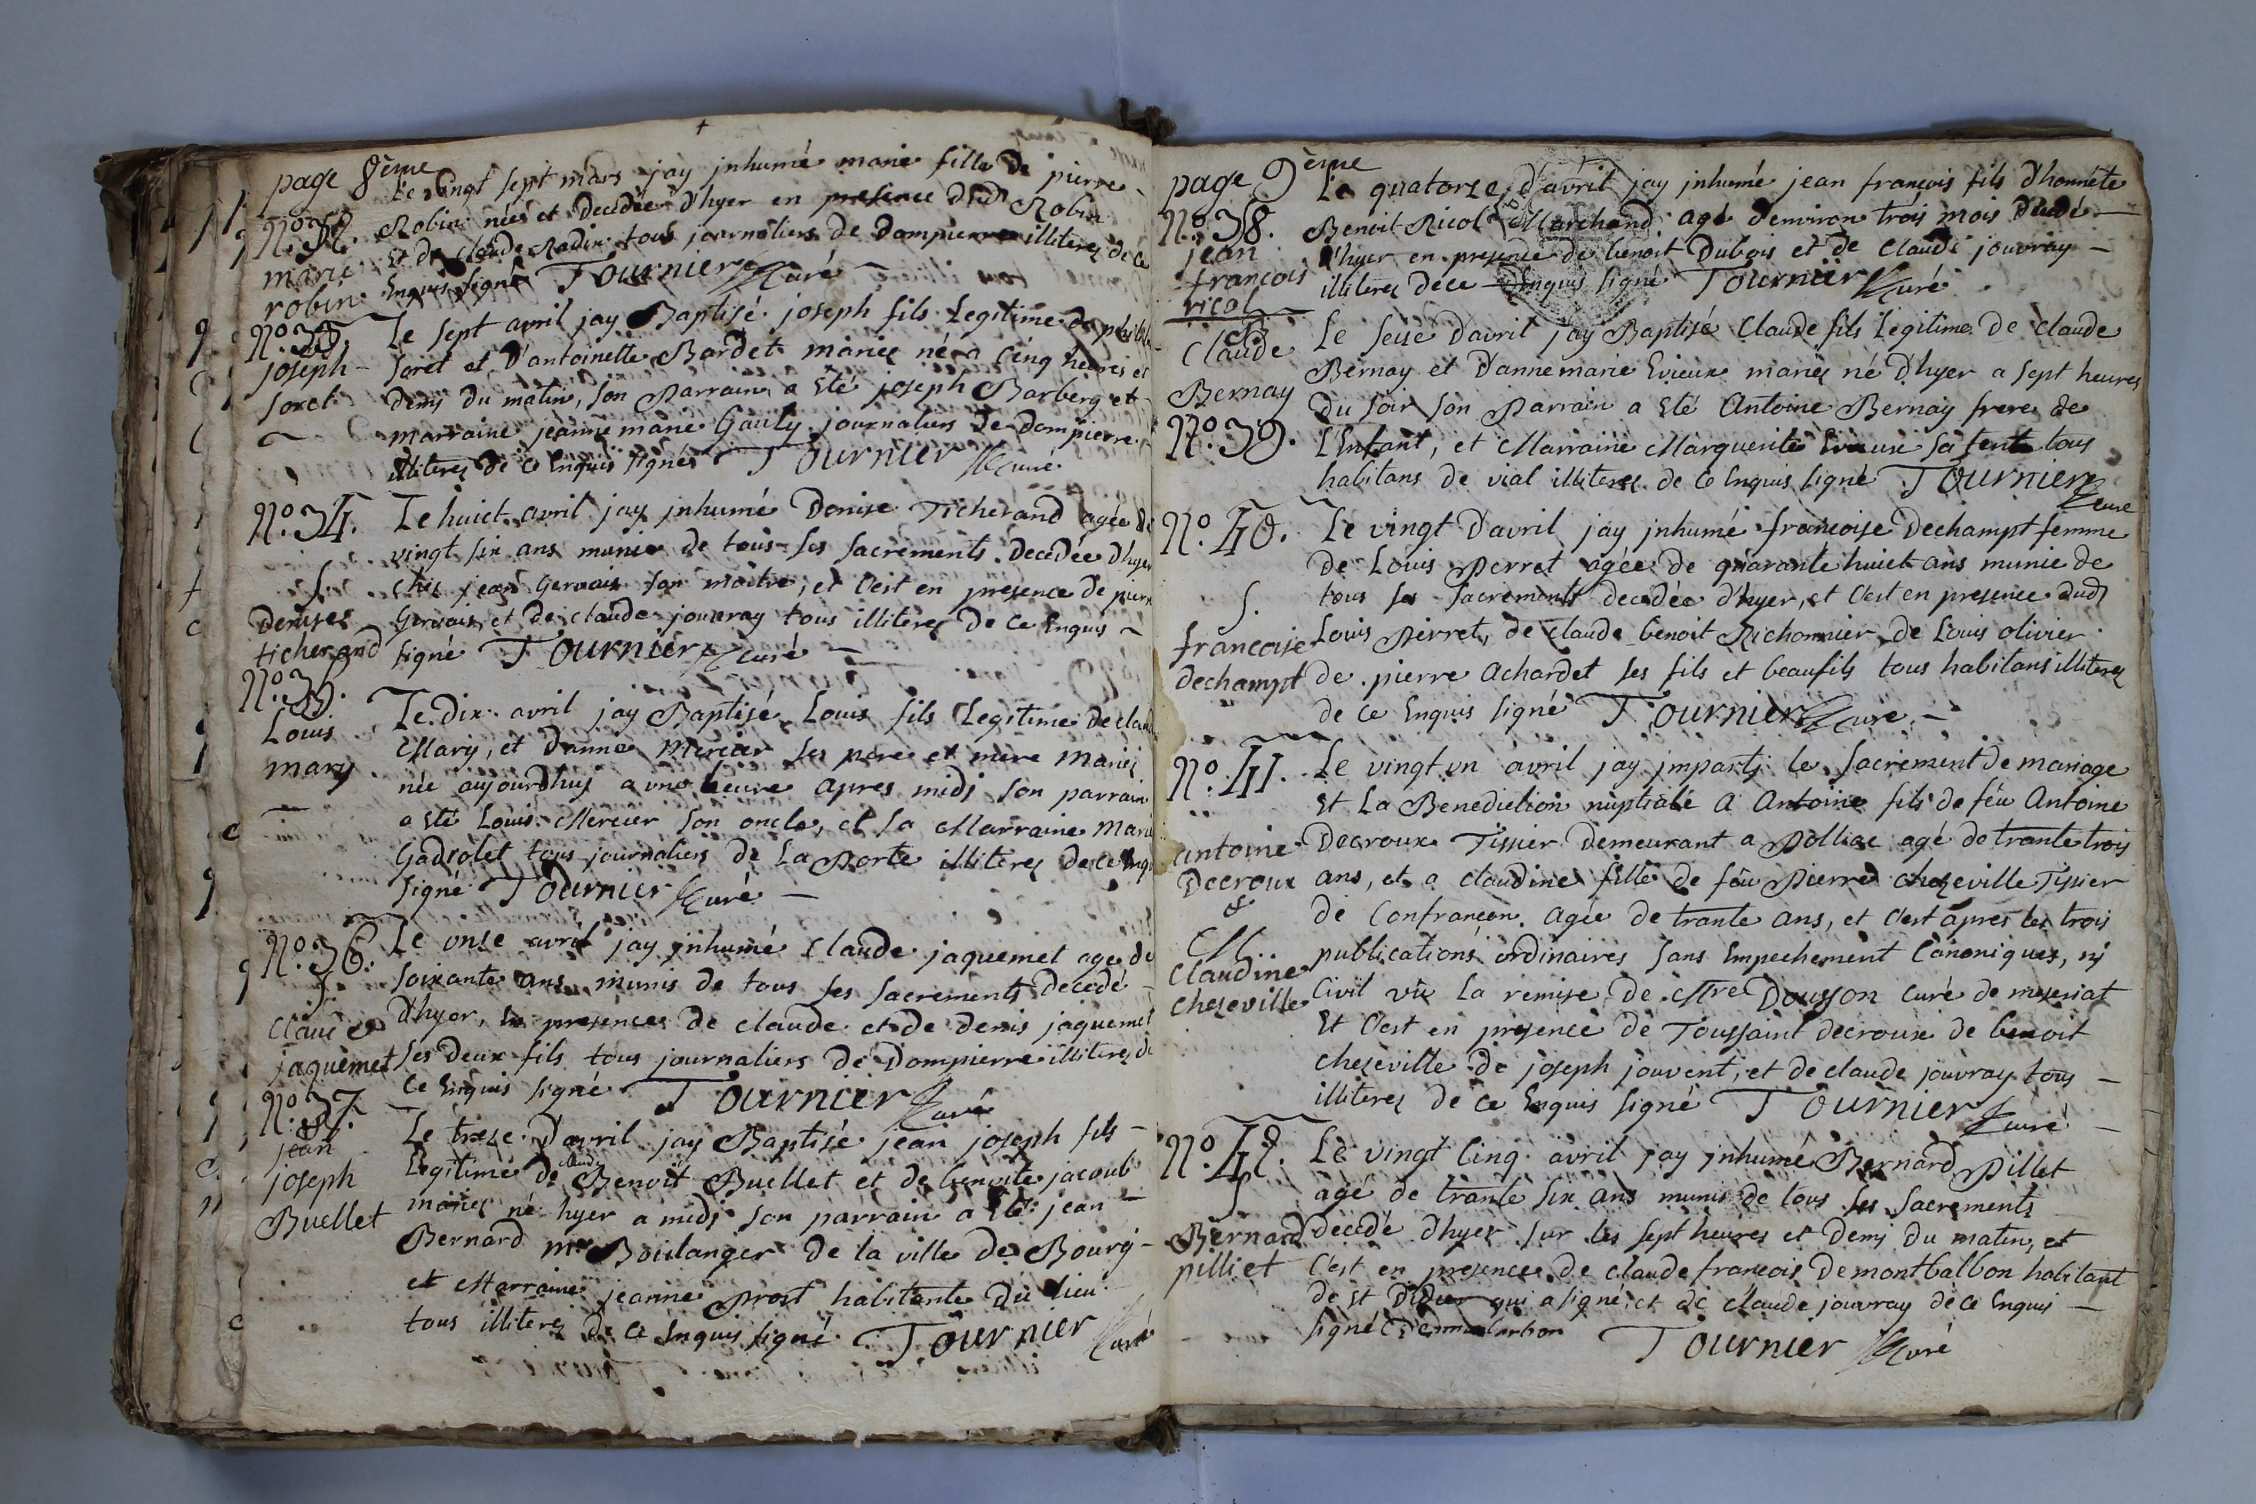 page 8ème
Le vingt sept mars jay jnhumé marie fille de pierre
N°. 32. Robin née et decedée d'hyer en presence dud Robin
marie et de claude Radix tous journaliers de dompierre illiterez de ce
robin Enquis signé Tournier Curé
N°. 33. Le sept avril jay Baptisé joseph fils Legitime de
joseph soret et d'antoinette Bardet mariez né a cinq heures et
soret demy du matin, son Parrain a eté joseph Barberg et
marraine jeanne marie Gauly journaliers de dompierre
illiterez de ce Enquis signés Tournier Curé
N°. 34. Le huict avril jay jnhumé Denise Ticherand agée de
vingt six ans munie de tous ses sacrements decedée d'hyer
S. chez jean Gervais son maitre, et c'est en presence de pierre
Denise Gervais, et de claude jouvray tous illiterez de ce Enquis
ticherand signé Tournier curé
N°. 35.
Louis Le dix avril jay Baptisé Louis fils Legitime de claude
mary Mary, et d'anne Mercier ses pere et mere mariez
née aujourdhuy a une heure apres midj son parrain
a eté Louis Mercier son oncle, et sa Marraine Marie
Gadiolet tous journaliers de La Porte illiterez de ce Enquis
signé Tournier Curé
N°. 36. Le onse avril jay jnhumé claude jaquemet agé de
S. soixante ans, munis de tous ses sacrements decedé
Claude d'hyer, en presence de claude et de denis jaquemet
jaquemet ses deux fils tous journaliers de Dompierre illiterez de
ce Enquis signé Tournier Curé
N°. 37. Le treze d'avril jay Baptisé jean joseph fils
jean Legitime de claude Benoit Buellet et de benoite jacoub
joseph mariez né hyer a midj son parrain a eté jean
Buellet Bernard me Boulanger de la ville de Bourg
et Marraine jeanne Prost habitante du lieu
tous illiterez de ce Enquis signé Tournier Curé
page 9ème
Le quatorze d'avril jay jnhumé jean françois fils d'honnête
N°. 38. Benoit Ricol Marchand agé d'environ trois mois decedé
jean d'hyer en presence de benoit Dubois et de Claude jouvray
françois illiterez de ce Enquis signé Tournier Curé
ricol
B Le seise d'avril jay Baptisé Claude fils Legitime de claude
Claude Bernay et d'annemarie Evieux mariez né d'hyer a sept heures
Bernay du soir son Parrain a eté Antoine Bernay frere de
N°. 39. L'Enfant, et Marraine Marguerite Evieux sa tente tous
habitans de vial illiterez de ce Enquis signé Tournier
Curé
N°. 40. Le vingt d'avril jay jnhumé francoise Dechampt femme
de Louis Perret agée de quarante huict ans munie de
S. tous ses sacrements decedée d'hyer, et c'est en presence dud
francoise Louis Perret, de claude benoit Richonnier de Louis olivier
dechampt de pierre achardet ses fils et beaufils tous habitans illiterez
de ce Enquis signé Tournier Curé
N°. 41. Le vingt un avril jay jmpartj le sacrement de mariage
et La Benediction nuptiale a Antoine fils de féu Antoine
antoine Decroux Tissier demeurant a Polliac agé de trante trois
Decroux ans, et a claudine fille de féu Pierre chezeville Tissier
& de Confrançon agée de trante ans, et c'est apres les trois
M. publications ordinaires sans Empechement Canoniques, nj
Claudine Civil vû la remise de Mre Dousson curé de meseriat
chezeville et c'est en presence de Toussaint decroux de benoit
chezeville de joseph jouvent, et de claude jouvray tous
illiterez de ce Enquis signé Tournier Curé
N°. 42. Le vingt cinq avril jay jnhumé Bernard Pillet
S agé de trante six ans munis de tous ses sacrements
Bernard decedé d'hyer sur les sept heures et demy du matin, et
pilliet c'est en presence de claude francois Demontbalbon habitant
de st Didier qui a signé, et de claude jouvray de ce Enquis
signé Tournier Curé